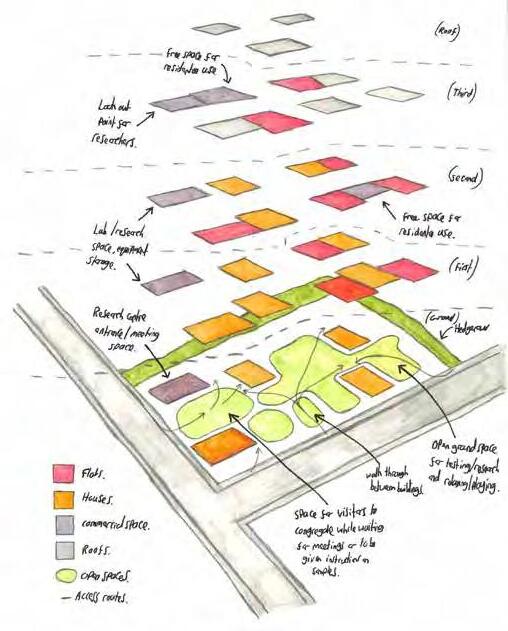 (Roof)
Free space for
residential use
(Third)
Look out
Point for
researchers.
(Second)
Lab/research
space, equipment
storage.
Free space for
residential use.
(First)
Research centre
entrance/meeting
space.
(Ground)
Hedgerow
Open ground space
for testing/research
and relaxing/playing.
walk through
between buildings.
Space for visitors to
congregate while waiting
for meetings or to be
given instruction on
samples.
Flats.
Houses.
Commercial space.
Roofs.
Open spaces.
Access routes.